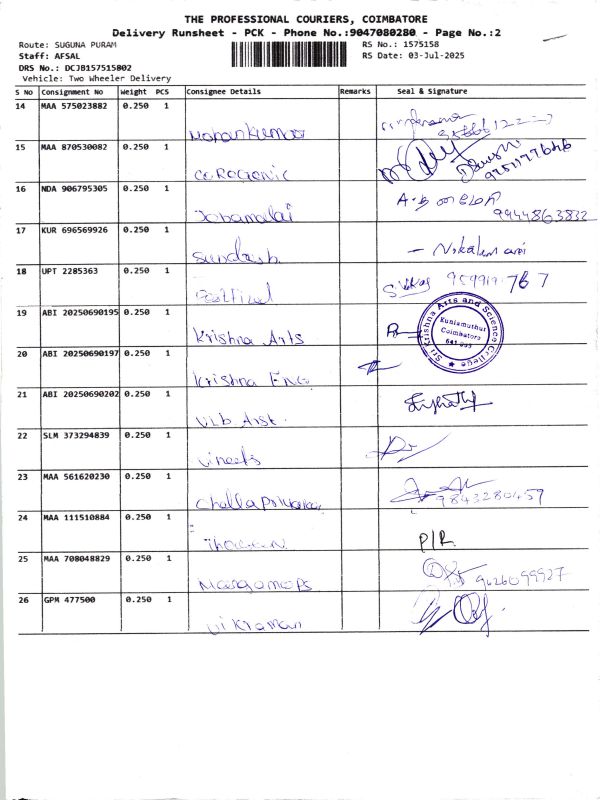 THE PROFESSIONAL COURIERS, COIMBATORE
Delivery Runsheet - PCK - Phone No.:9047080280 - Page No.:2
Route: SUGUNA PURAM
RS No.: 1575158
Staff: AFSAL
RS Date: 03-Jul-2025
DRS No.: DCJB157515802
Vehicle: Two Wheeler Delivery
S NO Consignment No Weight PCS Consignee Details Remarks Seal & Signature
14 MAA 575023882 0.250 1
Mohankumar
15 MAA 870530082 0.250 1
9751177646
16 NDA 906795305 0.250 1
Jobamalai
9944863832
17 KUR 696569926 0.250 1
Sundesh
18 UPT 2285363 0.250 1
19 ABI 20250690195 0.250 1
Krishna Arts
Sri Krishna Arts and Science College
Kuniamuthur
Coimbatore
641 008
20 ABI 20250690197 0.250 1
Krishna Eng
21 ABI 20250690202 0.250 1
VLB Arst.
22 SLM 373294839 0.250 1
Vineets
23 MAA 561620230 0.250 1
9843280457
24 MAA 111510884 0.250 1
P/R
25 MAA 708048829 0.250 1
9626099927
26 GPM 477500 0.250 1
Vikraman